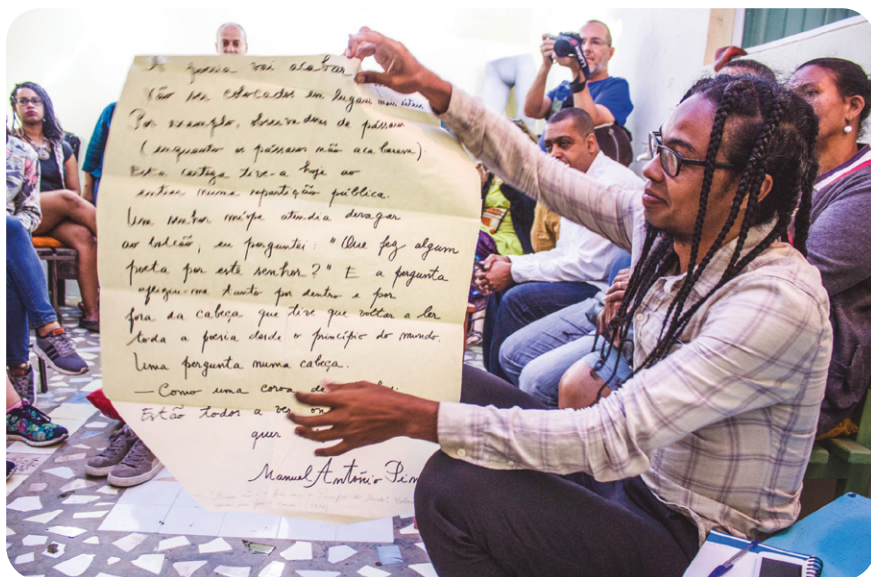 A poesia vai acabar
Vão ser colocados em lugares mais úteis
Por exemplo, observadores de pássaros
(enquanto os pássaros não acabarem).
Esta certeza tive-a hoje ao
entrar numa repartição pública.
Um senhor míope atendia devagar
ao balcão, eu perguntei: "Que fez algum
poeta por este senhor?" E a pergunta
afligiu-me tanto por dentro e por
fora da cabeça que tive que voltar a ler
toda a poesia desde o princípio do mundo.
Uma pergunta numa cabeça.
— Como uma coroa de
Estão todos a ver
quer
Manuel António